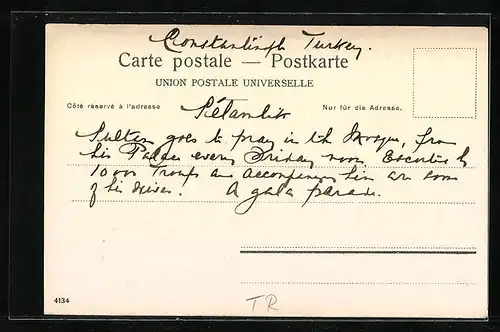 Constantinople Turkey.
Carte postale — Postkarte
UNION POSTALE UNIVERSELLE
Côté réservé à l'adresse
Nur für die Adresse.
Sélamlik
Sultan goes to pray in the Mosque, from
his Palace every Friday noon, Escorted by
10 000 Troops and accompanying him are some
of his wives. A gala parade.
4134
TR